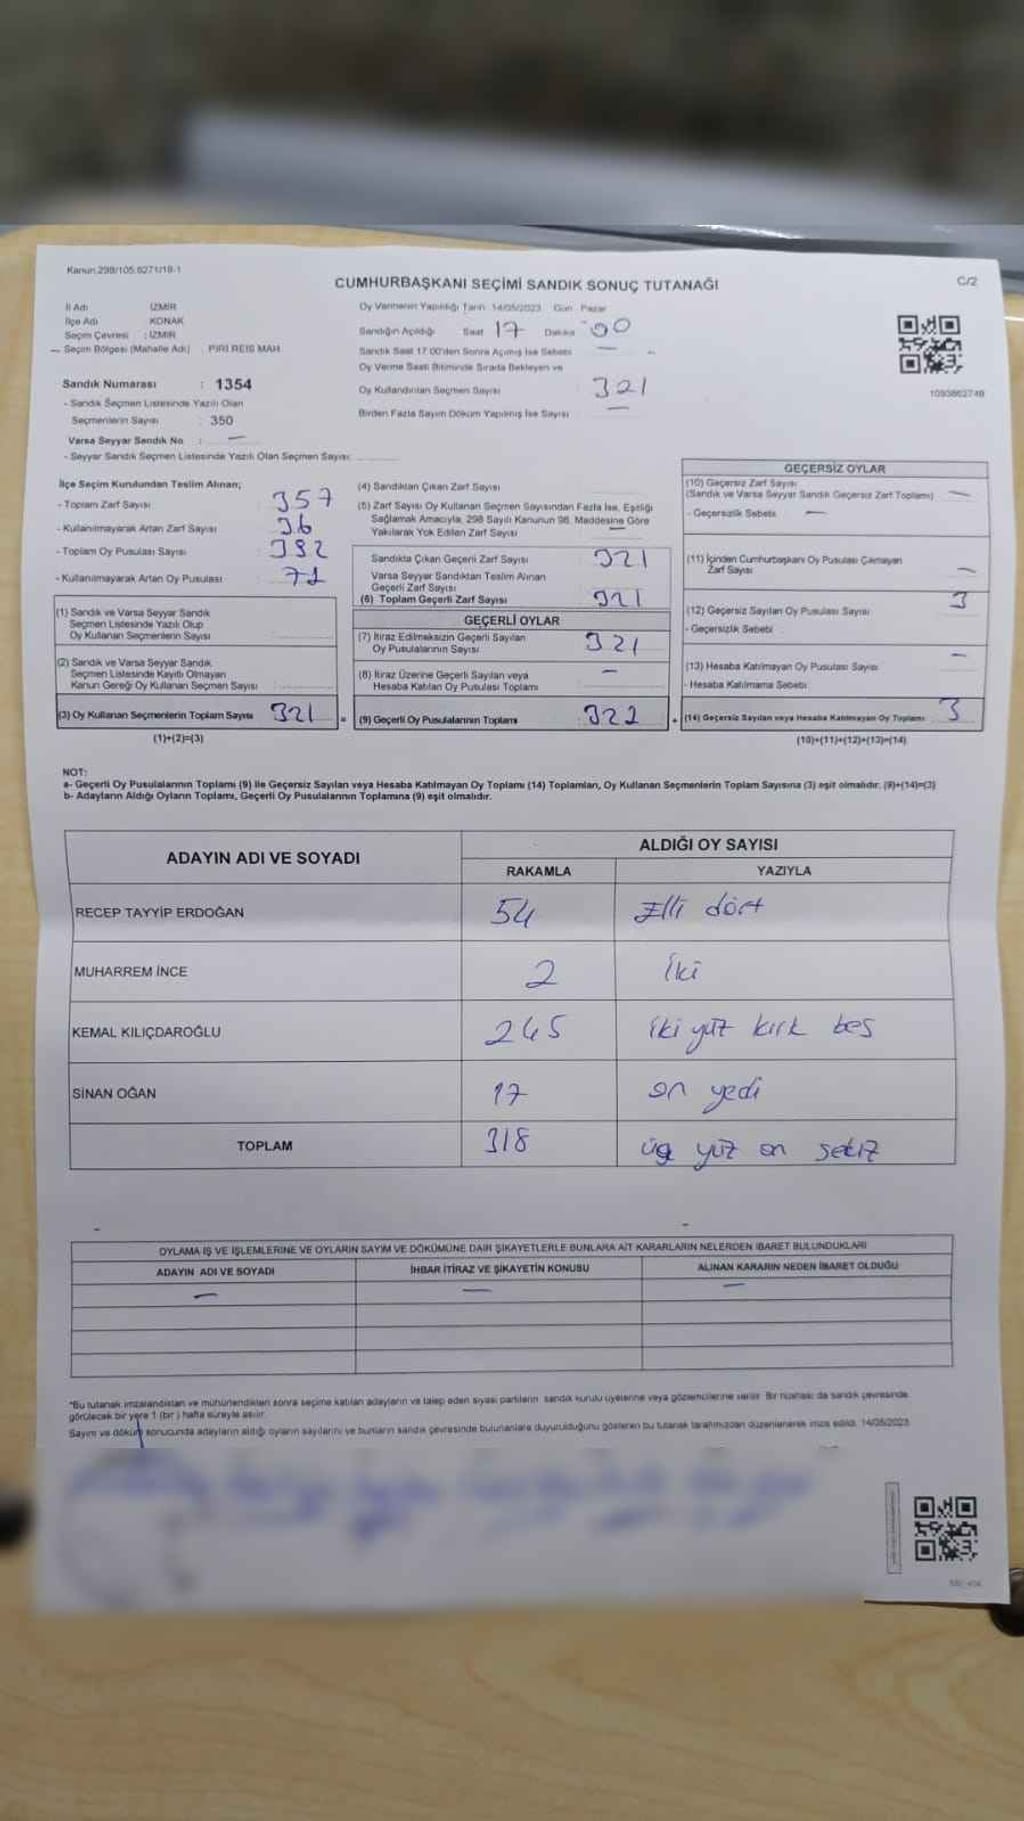 Kanun.298/105.6271/18-1
CUMHURBAŞKANI SEÇİMİ SANDIK SONUÇ TUTANAĞI
C/2
İl Adı : İZMİR
İlçe Adı : KONAK
Seçim Çevresi : İZMİR
Seçim Bölgesi (Mahalle Adı) : PİRİ REİS MAH
Sandık Numarası : 1354
- Sandık Seçmen Listesinde Yazılı Olan
Seçmenlerin Sayısı : 350
Varsa Seyyar Sandık No : —
- Seyyar Sandık Seçmen Listesinde Yazılı Olan Seçmen Sayısı:
Oy Vermenin Yapıldığı Tarih: 14/05/2023 Gün: Pazar
Sandığın Açıldığı Saat 17 Dakika 00
Sandık Saat 17:00'den Sonra Açılmış İse Sebebi —
Oy Verme Saati Bitiminde Sırada Bekleyen ve
Oy Kullandırılan Seçmen Sayısı 321
Birden Fazla Sayım Döküm Yapılmış İse Sayısı —
1093862748
İlçe Seçim Kurulundan Teslim Alınan;
- Toplam Zarf Sayısı 357
- Kullanılmayarak Artan Zarf Sayısı 36
- Toplam Oy Pusulası Sayısı 392
- Kullanılmayarak Artan Oy Pusulası 71
(1) Sandık ve Varsa Seyyar Sandık
Seçmen Listesinde Yazılı Olup
Oy Kullanan Seçmenlerin Sayısı
(2) Sandık ve Varsa Seyyar Sandık
Seçmen Listesinde Kayıtlı Olmayan
Kanun Gereği Oy Kullanan Seçmen Sayısı
(3) Oy Kullanan Seçmenlerin Toplam Sayısı 321 =
(1)+(2)=(3)
(4) Sandıktan Çıkan Zarf Sayısı
(5) Zarf Sayısı Oy Kullanan Seçmen Sayısından Fazla İse, Eşitliği
Sağlamak Amacıyla, 298 Sayılı Kanunun 98. Maddesine Göre
Yakılarak Yok Edilen Zarf Sayısı —
Sandıkta Çıkan Geçerli Zarf Sayısı 321
Varsa Seyyar Sandıktan Teslim Alınan
Geçerli Zarf Sayısı
(6) Toplam Geçerli Zarf Sayısı 321
GEÇERLİ OYLAR
(7) İtiraz Edilmeksizin Geçerli Sayılan
Oy Pusulalarının Sayısı 321
(8) İtiraz Üzerine Geçerli Sayılan veya
Hesaba Katılan Oy Pusulası Toplamı —
(9) Geçerli Oy Pusulalarının Toplamı 322 +
GEÇERSİZ OYLAR
(10) Geçersiz Zarf Sayısı
(Sandık ve Varsa Seyyar Sandık Geçersiz Zarf Toplamı) —
- Geçersizlik Sebebi: —
(11) İçinden Cumhurbaşkanı Oy Pusulası Çıkmayan
Zarf Sayısı —
(12) Geçersiz Sayılan Oy Pusulası Sayısı 3
- Geçersizlik Sebebi
(13) Hesaba Katılmayan Oy Pusulası Sayısı —
- Hesaba Katılmama Sebebi:
(14) Geçersiz Sayılan veya Hesaba Katılmayan Oy Toplamı 3
(10)+(11)+(12)+(13)=(14)
NOT:
a- Geçerli Oy Pusulalarının Toplamı (9) ile Geçersiz Sayılan veya Hesaba Katılmayan Oy Toplamı (14) Toplamları, Oy Kullanan Seçmenlerin Toplam Sayısına (3) eşit olmalıdır. (9)+(14)=(3)
b- Adayların Aldığı Oyların Toplamı, Geçerli Oy Pusulalarının Toplamına (9) eşit olmalıdır.
ADAYIN ADI VE SOYADI
ALDIĞI OY SAYISI
RAKAMLA YAZIYLA
RECEP TAYYİP ERDOĞAN 54 Elli dört
MUHARREM İNCE 2 iki
KEMAL KILIÇDAROĞLU 245 iki yüz kırk beş
SİNAN OĞAN 17 on yedi
TOPLAM 318 üç yüz on sekiz
OYLAMA İŞ VE İŞLEMLERİNE VE OYLARIN SAYIM VE DÖKÜMÜNE DAİR ŞİKAYETLERLE BUNLARA AİT KARARLARIN NELERDEN İBARET BULUNDUKLARI
ADAYIN ADI VE SOYADI İHBAR İTİRAZ VE ŞİKAYETİN KONUSU ALINAN KARARIN NEDEN İBARET OLDUĞU
— — —
*Bu tutanak imzalandıktan ve mühürlendikten sonra seçime katılan adayların ve talep eden siyasi partilerin sandık kurulu üyelerine veya gözlemcilerine verilir. Bir nüshası da sandık çevresinde
görülecek bir yere 1 (bir) hafta süreyle asılır.
Sayım ve döküm sonucunda adayların aldığı oyların sayılarını ve bunların sandık çevresinde bulunanlara duyurulduğunu gösteren bu tutanak tarafımızdan düzenlenerek imza edildi. 14/05/2023